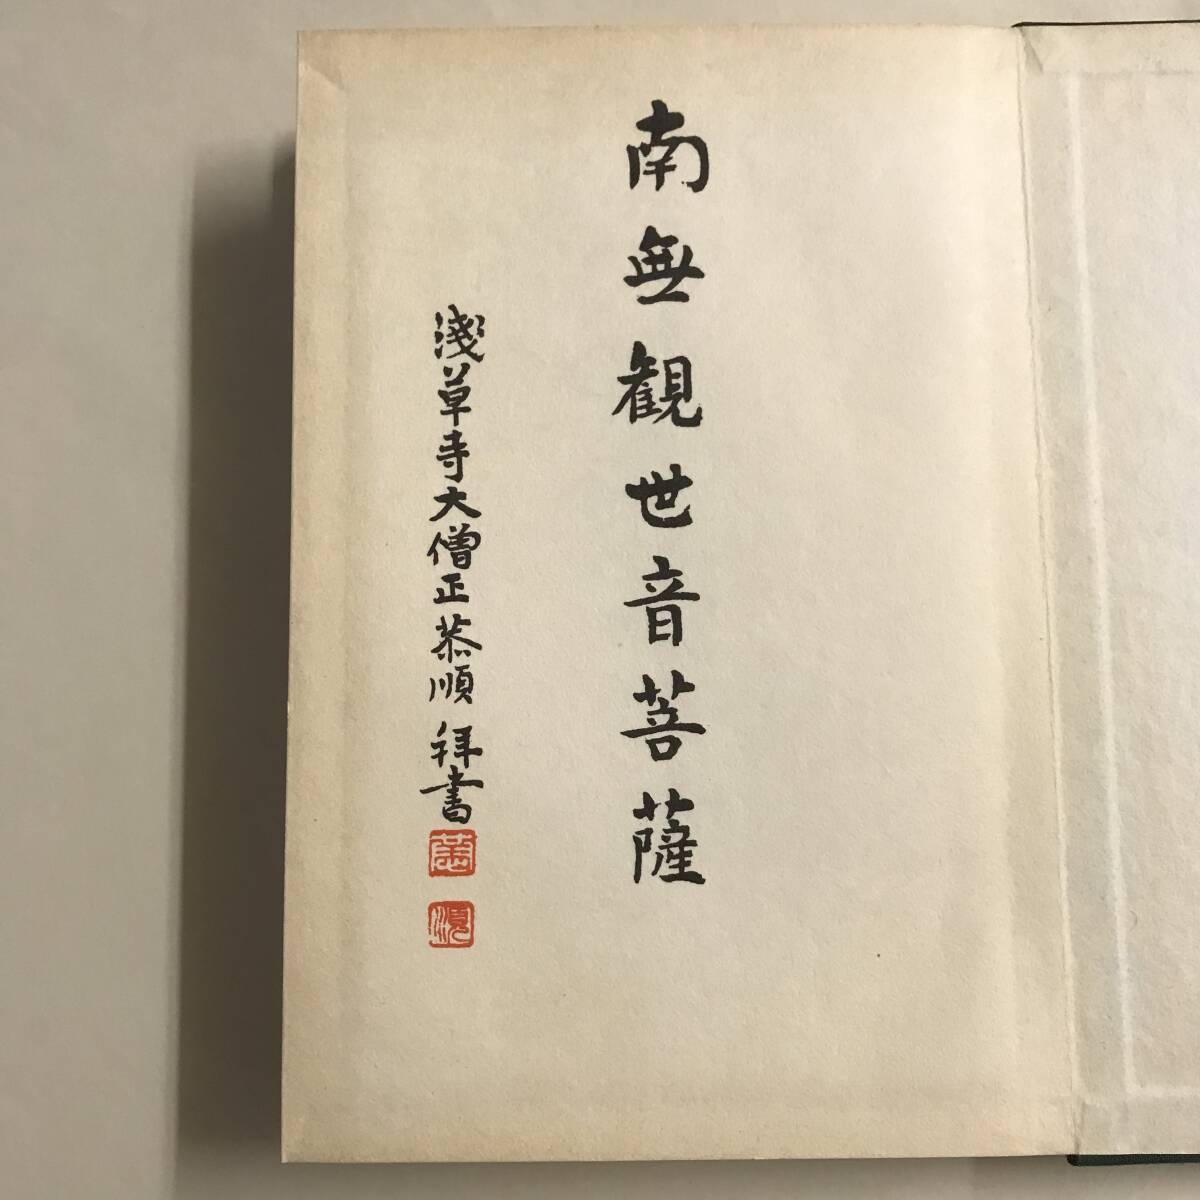 南無観世音菩薩
淺草寺大僧正恭順拝書
恭
順